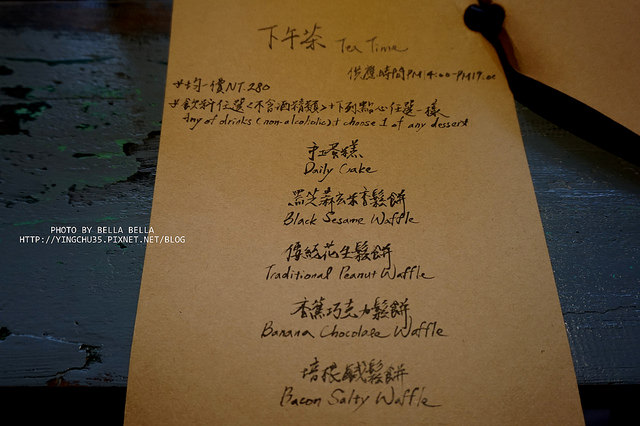 下午茶 Tea Time
供應時間PM14:00-PM17:00
#均一價NT.280
#飲料任選<不含酒精類>+下列點心任選一樣
Any of drinks (non-alcoholic) + choose 1 of any dessert
手工蛋糕
Daily Cake
黑芝麻玄米香鬆餅
Black Sesame Waffle
傳統花生鬆餅
Traditional Peanut Waffle
香蕉巧克力鬆餅
Banana Chocolate Waffle
培根鹹鬆餅
Bacon Salty Waffle
PHOTO BY BELLA BELLA
HTTP://YINGCHU35.PIXNET.NET/BLOG